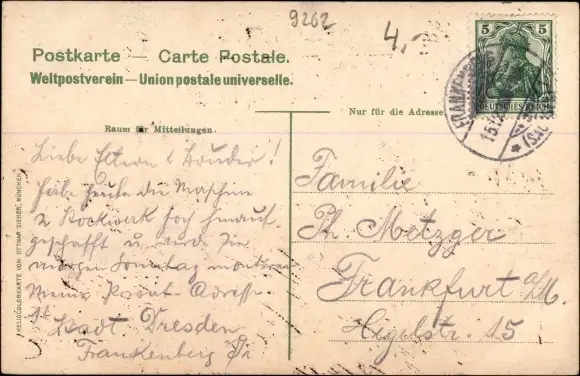 9262
4,-
Postkarte — Carte Postale.
Weltpostverein — Union postale universelle.
5 5
DEUTSCHES REICH
FRANKENBERG
15.12
(SACHSEN)
Nur für die Adresse
Raum für Mitteilungen.
Liebe Eltern & Bruder!
Habe heute die Maschine
2 Stockwerk hoch hinauf-
geschafft u. werde sie
morgen Sonntag montieren
Meine Privat Adresse
ist Stadt Dresden
Frankenberg Sa
Familie
Ph. Metzger
Frankfurt a/M.
Hegelstr. 15
HELIOCOLORKARTE VON OTTMAR ZIEHER, MÜNCHEN